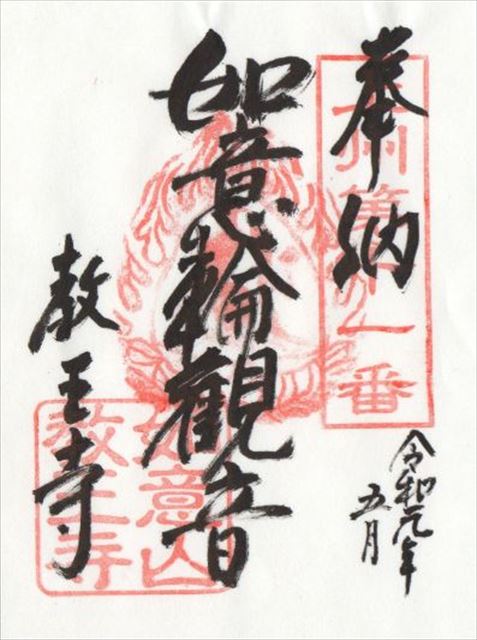 奉納
令和元年
五月
如意輪観音
教王寺
如意山
教王寺